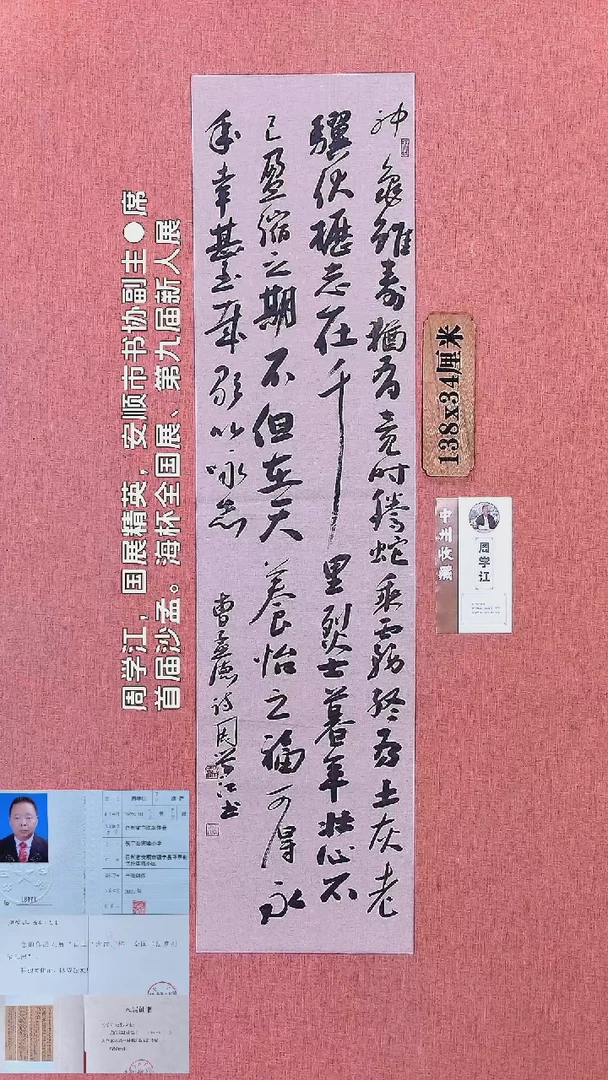 神龜雖壽猶有竟时騰蛇乘霧終為土灰老
驥伏櫪志在千里烈士暮年壮心不
已盈縮之期不但在天養怡之福可得永
年幸甚至哉歌以咏志
曹孟德诗周学江书
周学江，国展精英，安顺市书协副主●席
首届沙孟。海杯全国展、第九届新人展
138x34厘米
中州收藏
周学江